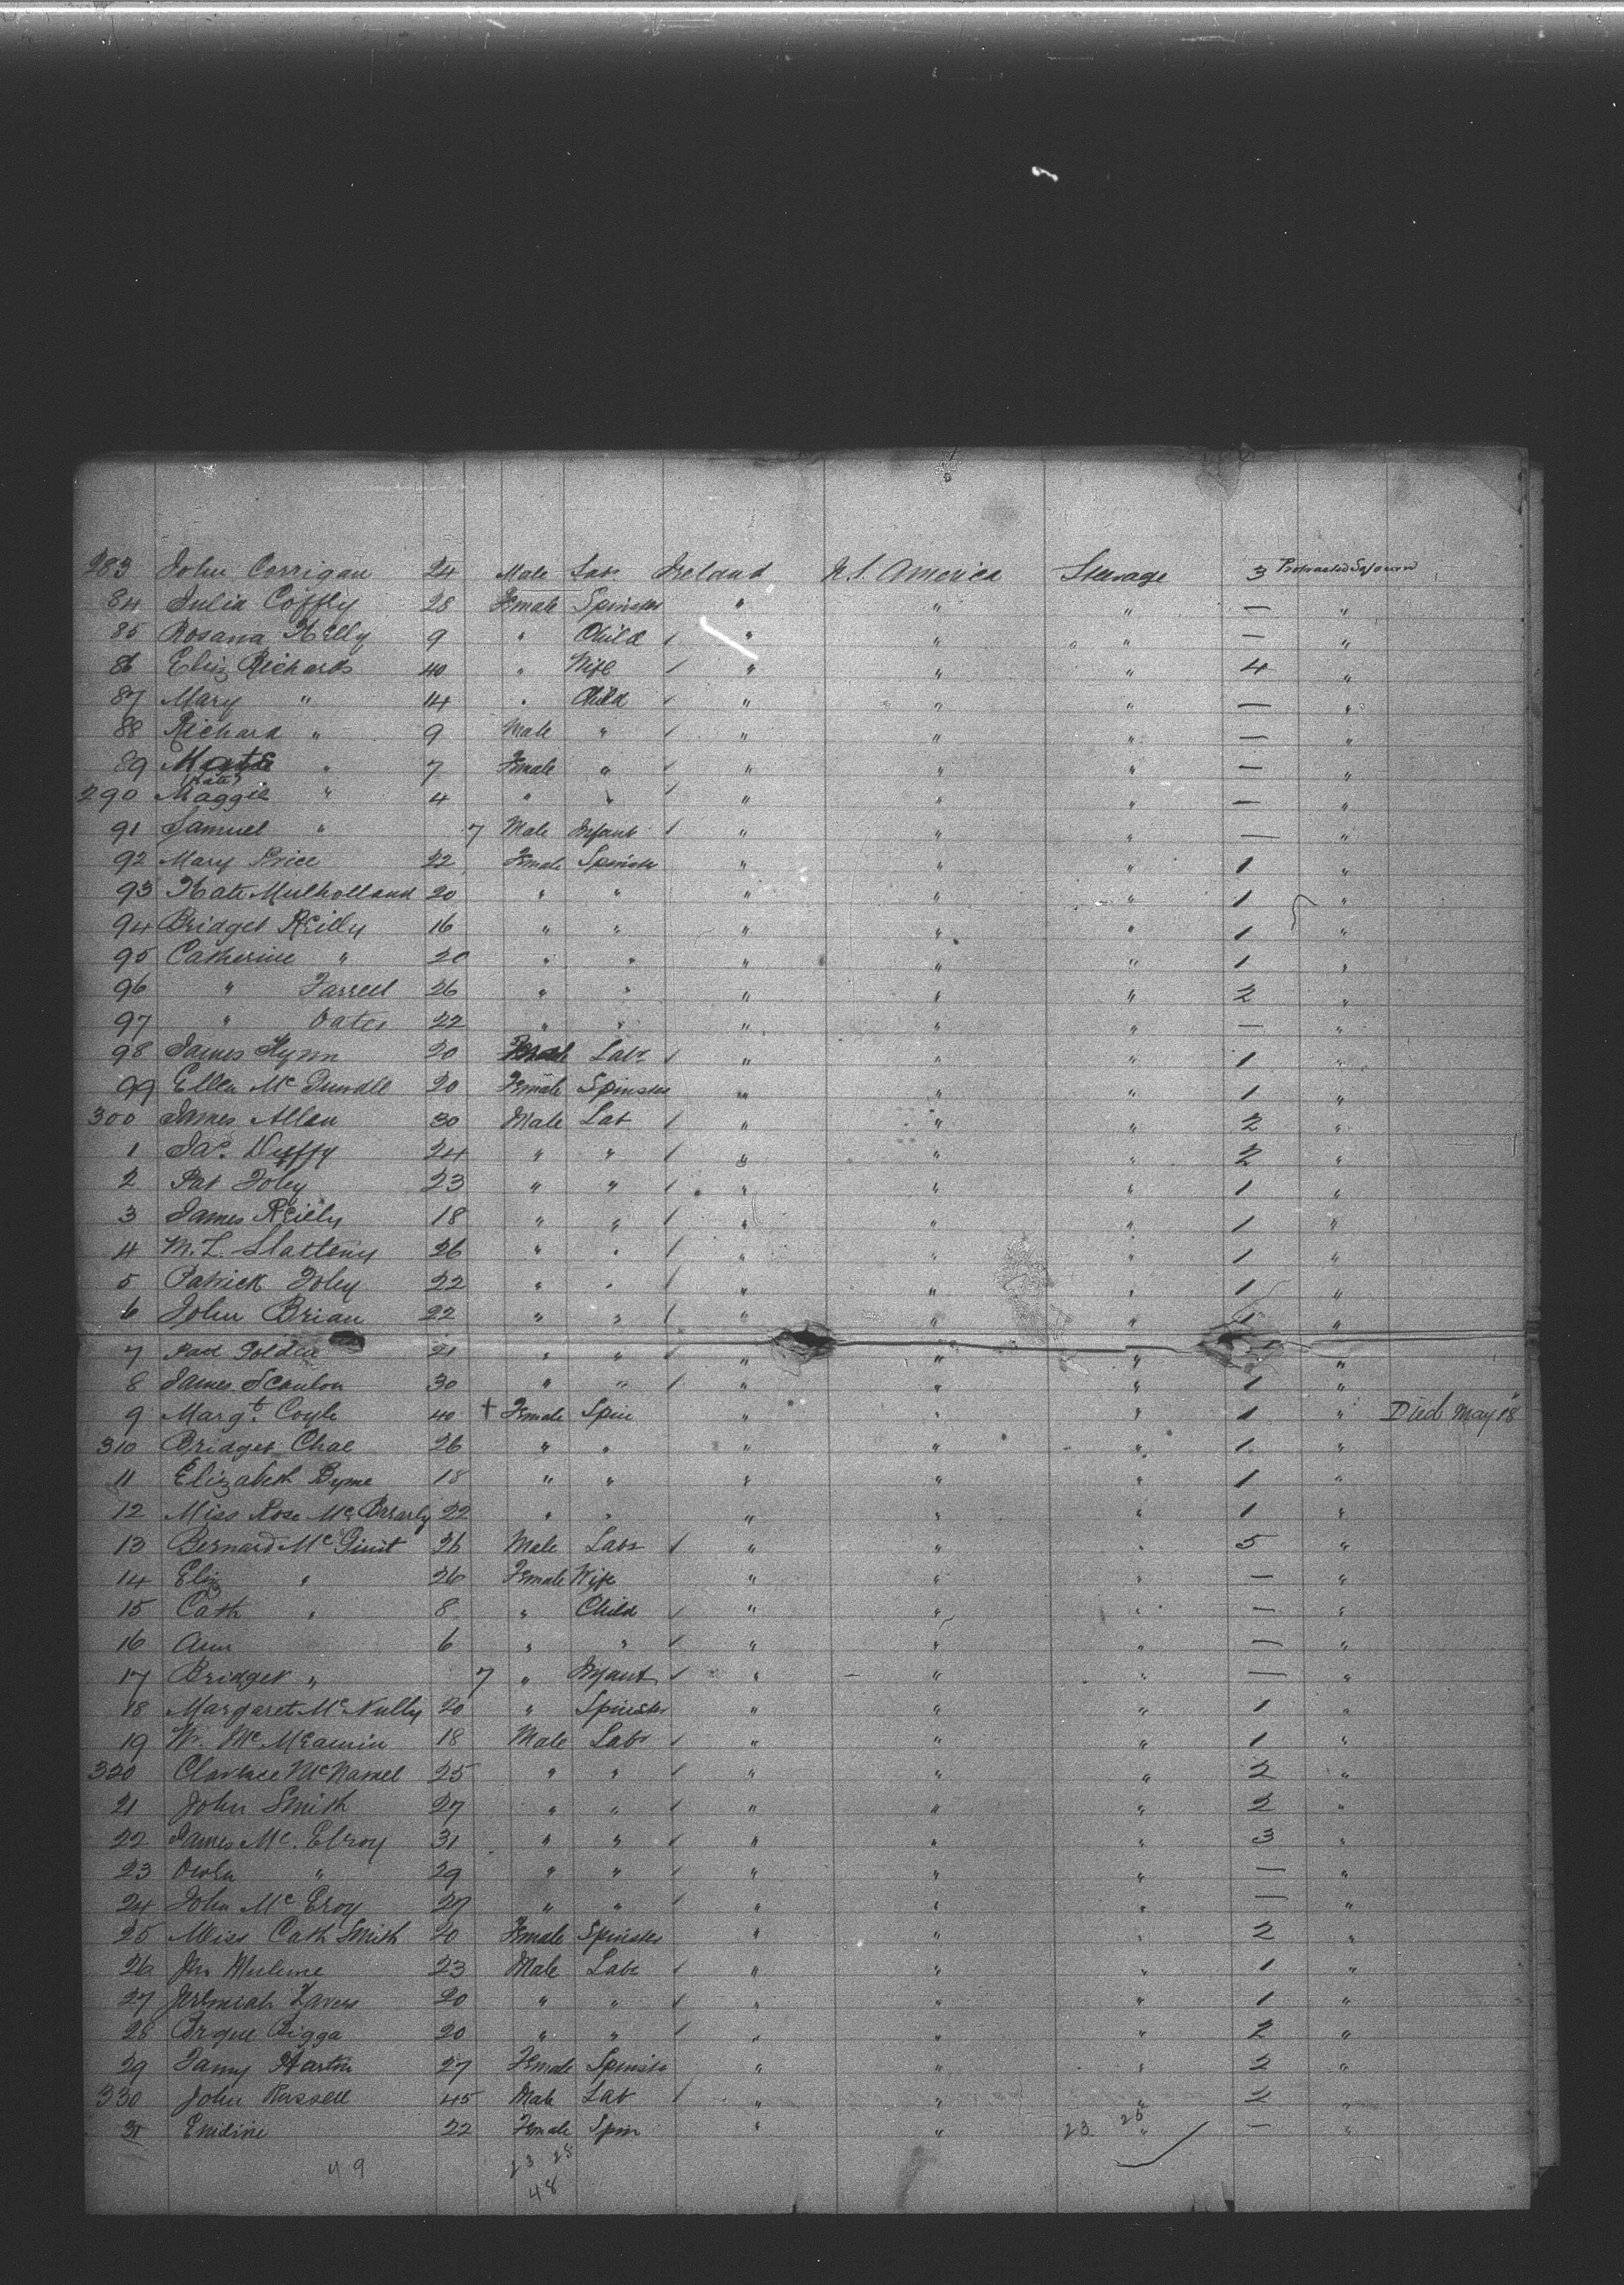 283 John Corrigan 24 Male Labr Ireland U.S. America Steerage 3 Protracted Sojourn
84 Julia Coffey 28 Female Spinster " " " — "
85 Rosana Kelly 9 " Child / " " " — "
86 Eliz Richards 40 " Wife / " " " 4 "
87 Mary " 14 " Child / " " " — "
88 Richard " 9 Male " / " " " — "
89 " 7 Female " / " " " — "
290 Maggie " 4 " " / " " " — "
91 Samuel " 7 Male Infant / " " " — "
92 Mary Price 22 Female Spinster " " " 1 "
93 Kate Mulholland 20 " " " " " 1 "
94 Bridget Reilly 16 " " " " " 1 "
95 Catherine " 20 " " " " " 1 "
96 " Farrell 26 " " " " " 2 "
97 " Oates 22 " " " " " — "
98 James Flynn 20 Labr / " " " 1 "
99 Ellen Mc 20 Female Spinster " " " 1 "
300 James Allan 30 Male Lab / " " " 2 "
1 Jas. Duffy 24 " " / " " " 2 "
2 Pat Foley 23 " " / " " " 1 "
3 James Reilly 18 " " / " " " 1 "
4 M. L. Slattery 26 " " / " " " 1 "
5 Patrick Foley 22 " " / " " " 1 "
6 John Brian 22 " " / " " " 1 "
7 Golden 21 " " / " " " "
8 James Scanlon 30 " " / " " " 1 "
9 Margt. Coyle 40 + Female Spin " " " 1 " Died May 18"
310 Bridget 26 " " " " " 1 "
11 Elizabeth Byrne 18 " " " " " 1 "
12 Miss Rose Mc Brearly 22 " " " " " 1 "
13 Bernard Mc Ginit 26 Male Labr / " " " 5 "
14 Eliz " 26 Female Wife " " " — "
15 Cath " 8 " Child / " " " — "
16 Ann 6 " " / " " " — "
17 Bridget " 7 " Infant / " " " — "
18 Margaret Mc Nully 20 " Spinster " " " 1 "
19 Wm. Mc 18 Male Labr / " " " 1 "
320 Clarence McNamel 25 " " / " " " 2 "
21 John Smith 27 " " / " " " 2 "
22 James Mc. Elroy 31 " " / " " " 3 "
23 Owen " 29 " " / " " " — "
24 John Mc Eroy 27 " " / " " " — "
25 Miss Cath Smith 20 Female Spinster " " " 2 "
26 Jno 23 Male Labr / " " " 1 "
27 Jeremiah 20 " " / " " " 1 "
28 20 " " / " " " 2 "
29 Fanny Harton 27 Female Spinster " " " 2 "
330 John Russell 45 Male Lab / " " " 2 "
31 22 Female Spin " " 23 25 " — "
49 23 25
48